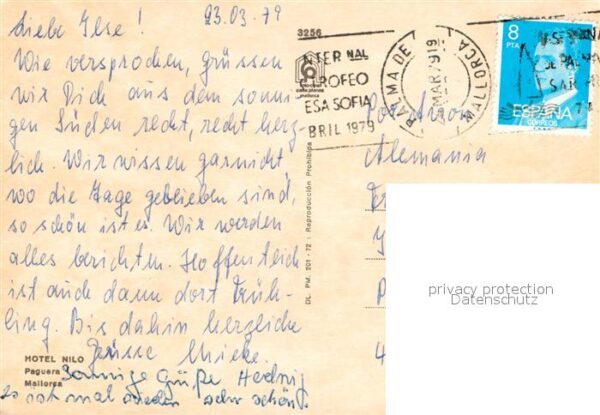 Liebe Ilse! 23.03.79
Wie versprochen, grüssen
wir Dich aus dem sonni-
gen Süden recht, recht herz-
lich. Wir wissen garnicht
wo die Tage geblieben sind,
so schön ist es. Wir werden
alles berichten. Hoffentlich
ist auch dann dort Früh-
ling. Bis dahin herzliche
Grüsse Mieke.
Sonnige Grüße Hedwig
es ist mal wieder sehr schön.
HOTEL NILO
Paguera
Mallorca
3256
DL. PM. 201-72 : Reproducción Prohibida
NTER NAL
TROFEO
ESA SOFIA
BRIL 1979
PALMA DE MALLORCA
MAR 79 19
8
PTA
ESPAÑA
CORREOS
Alemania
privacy protection
Datenschutz